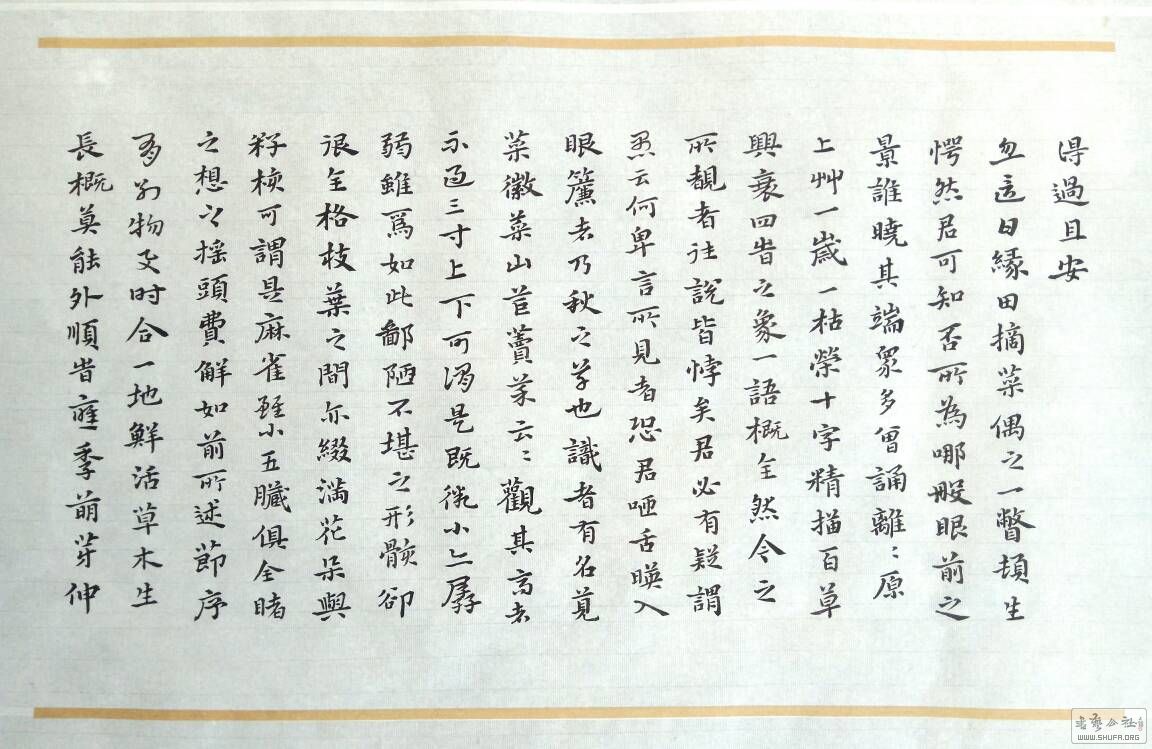 得過且安
忽這日緣田摘菜偶之一瞥頓生
愕然君可知否所為哪般眼前之
景誰曉其端眾多曾誦離〻原
上艸一歲一枯榮十字精描百草
興衰四旹之象一語概全然今之
所覩者往說皆悖矣君必有疑謂
愚云何卑言所見者恐君咂舌暎入
眼簾者乃秋之草也識者有名莧
菜徽菜山苣蕒菜云〻觀其高者
不過三寸上下可謂是既微小亦孱
弱雖焉如此鄙陋不堪之形骸卻
退全格枝葉之間亦綴滿花朵與
籽椟可謂是麻雀雖小五臟俱全睹
之想之搖頭費解如前所述節序
有別物及时合一地鮮活草木生
長概莫能外順旹應季萌芽伸
WWW.SHUFA.ORG